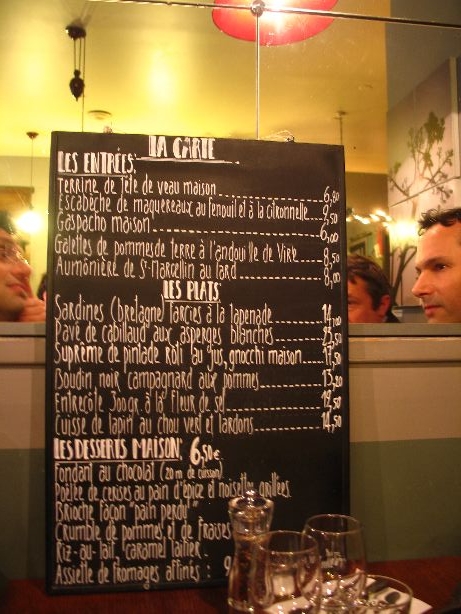 LA CARTE
LES ENTRÉES:
Terrine de Tête de veau maison 6,80
Escabèche de maquereaux au fenouil et à la citronnelle 7,50
Gaspacho maison 6,00
Galettes de pommes de terre à l'andouille de Vire 8,50
Aumônière de St-Marcellin au lard 8,00
LES PLATS
Sardines (bretagne) farcies à la tapenade 14,00
Pavé de cabillaud aux asperges blanches
Suprême de pintade rôti au jus, gnocchi maison 17,50
Boudin noir campagnard aux pommes 13,20
Entrecôte 300gr. à la fleur de sel
Cuisse de lapin au chou vert et lardons 14,50
LES DESSERTS MAISON: 6,50€
Fondant au chocolat (20 m de cuisson)
Poêlée de cerises au pain d'épice et noisettes grillées
Brioche façon "pain perdu"
Crumble de pommes et de fraises
Riz-au-lait, caramel laitier.
Assiette de fromages affinés : 9